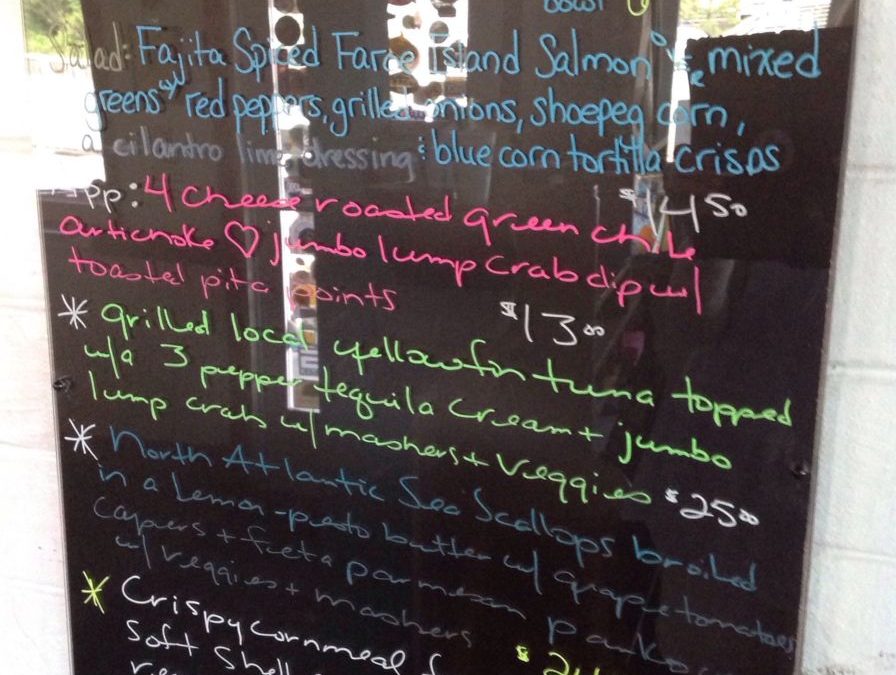 bowl
Salad: Fajita Spiced Faroe Island Salmon mixed
greens w/ red peppers, grilled onions, shoepeg corn,
a cilantro lime dressing & blue corn tortilla crisps
$14 50
App: 4 cheese roasted green chile
artichoke ♡ jumbo lump crab dip w/
toasted pita points
$13 00
* grilled local yellowfin tuna topped
w/a 3 pepper tequila cream + jumbo
lump crab w/ mashers + veggies $25 00
* North Atlantic Sea Scallops broiled
in a Lemon-pesto butter w/ grape tomatoes
capers + feta parmesan panko
w/ veggies + mashers
* Crispy Cornmeal
Soft Shell